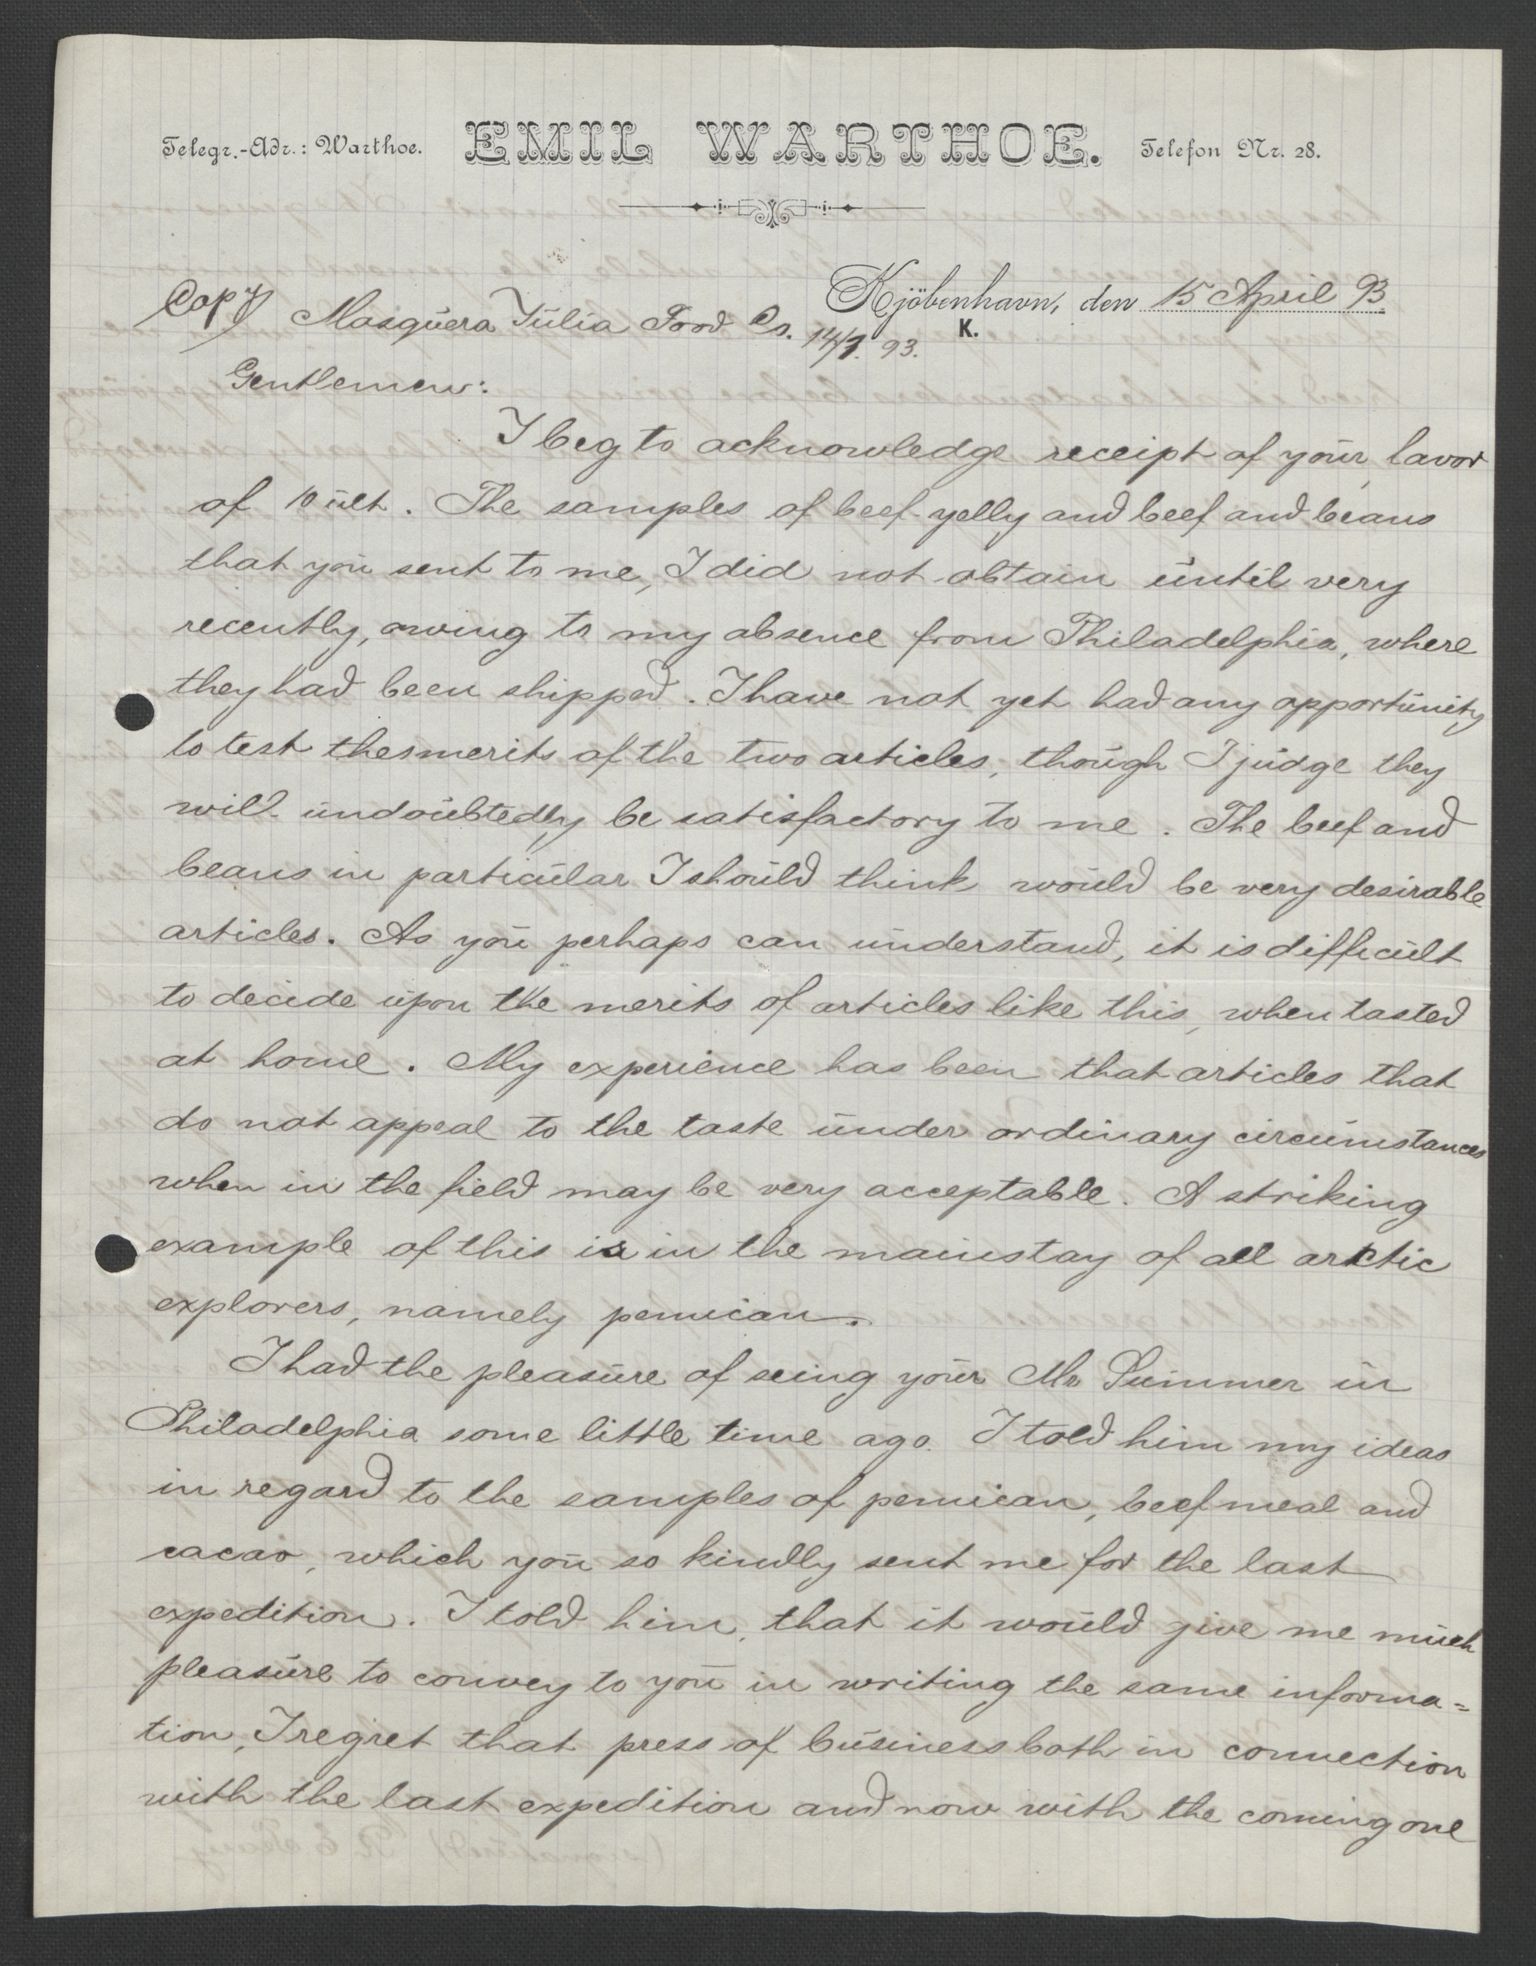 Telegr.-Adr.: Warthoe. EMIL WARTHOE. Telefon Nr. 28.
Kjöbenhavn, den 15 April 93
K.
Copy Mosquera Julia Food Co. 14/3. 93.
Gentlemen:
I beg to acknowledge receipt of your favor
of 10 ult. The samples of beef-yelly and beef and beans
that you sent to me, I did not obtain until very
recently, owing to my absence from Philadelphia, where
they had been shipped. I have not yet had any opportunity
to test the merits of the two articles, though I judge they
will undoubtedly be satisfactory to me. The beef and
beans in particular I should think would be very desirable
articles. As you perhaps can understand, it is difficult
to decide upon the merits of articles like this, when tasted
at home. My experience has been that articles that
do not appeal to the taste under ordinary circumstances
when in the field may be very acceptable. A striking
example of this is in the mainstay of all arctic
explorers, namely pemican.
I had the pleasure of seing your Mr Summer in
Philadelphia some little time ago. I told him my ideas
in regard to the samples of pemican, beef meal and
cacao, which you so kindly sent me for the last
expedition. I told him, that it would give me much
pleasure to convey to you in writing the same informa=
tion, I regret that press of business both in connection
with the last expedition and now with the coming one